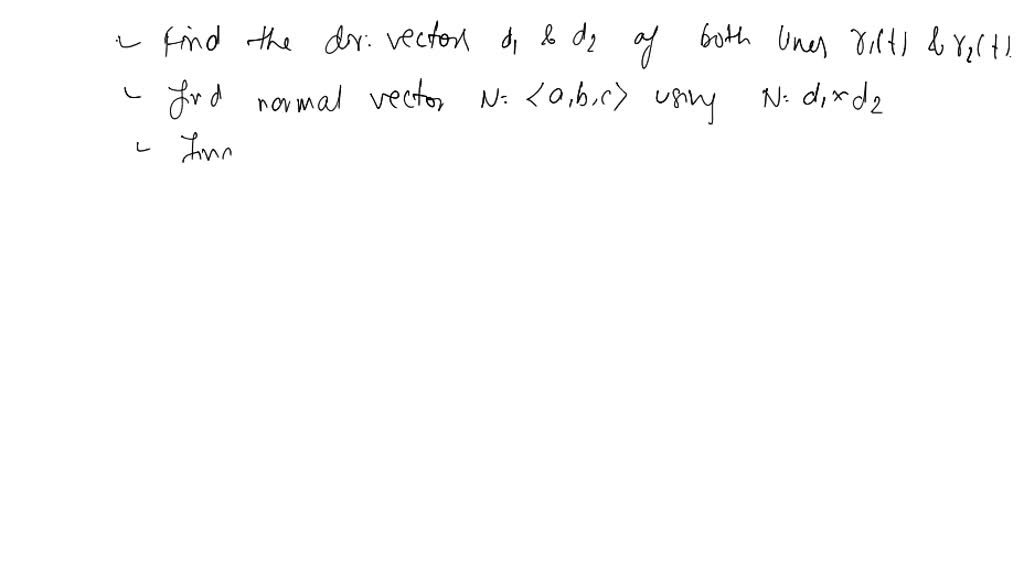 - Find the dir. vector d₁ & d₂ of both lines r₁(t) & r₂(t).
- find normal vector N = <a,b,c> using N = d₁ × d₂
-